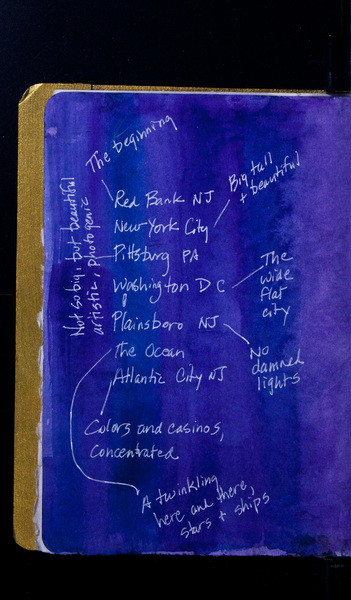 The beginning
Red Bank NJ
Big tall
+ beautiful
New York City
Not so big, but beautiful
artistic, photogenic
Pittsburg PA
Washington DC
The
wide
flat
city
Plainsboro NJ
No
damned
lights
The Ocean
Atlantic City NJ
Colors and casinos,
concentrated
A twinkling
here and there,
stars + ships